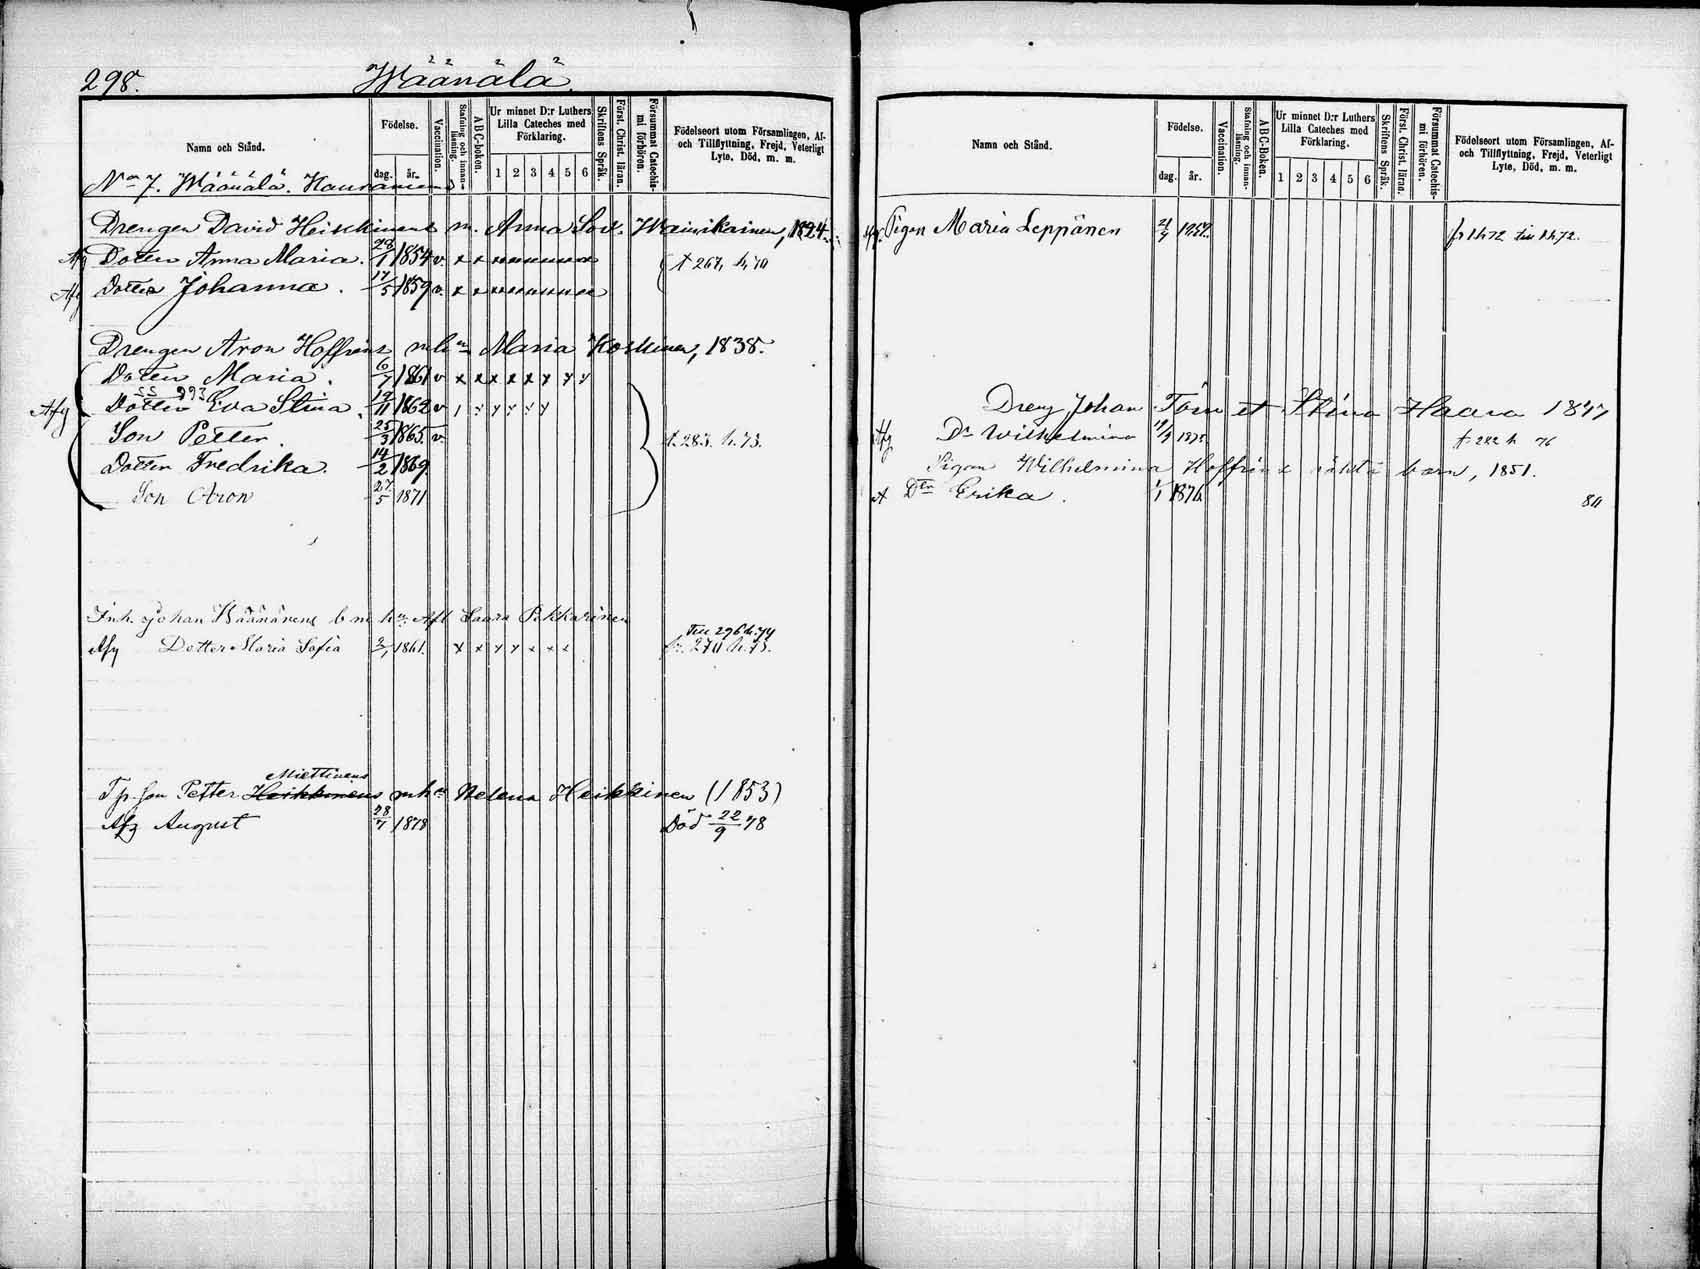 298.
Wäänälä
Namn och Stånd.
Födelse.
dag. år.
Vaccination.
Stafning och innanläsning.
A B C-boken.
Ur minnet D:r Luthers Lilla Cateches med Förklaring.
1 2 3 4 5 6
Skriftens Språk.
Först. Christ. läran.
Försummat Catechismi förhören.
Födelseort utom Församlingen, Af- och Tillflyttning, Frejd, Veterligt Lyte, Död, m. m.
No 7. Wäänälä.
Drengen David m. Anna Sof. Wainikainen, 1824.
Afg Dotter Anna Maria. 28/1 1854 v. x x x x x x x x t 267, h 70
Afg Dotter Johanna. 17/5 1859 v. x x x x x x x x
Drengen Aron Hoffrens mh m Maria Koskinen, 1838.
Dotter Maria. 6/7 1861 v x x x x x x x x
Afg Dotter Eva Stina. 12/11 1862 v
Son Petter. 25/3 1865. v. t. 283. h. 73.
Dotter Fredrika. 14/2 1869
Son Aron 27/5 1871
Inh. Johan Väänänens b m Afl Laura Pekkarinen
Till 296 h. 74
Afg Dotter Maria Sofia 2/1 1861. x x x x x x x fr. 270 h. 73.
Miettinens
Petter Heikkinens mh Helena Heikkinen (1853)
Afg August 28/7 1878 Död 22/9 78
Namn och Stånd.
Födelse.
dag. år.
Vaccination.
Stafning och innanläsning.
A B C-Boken.
Ur minnet D:r Luthers Lilla Cateches med Förklaring.
1 2 3 4 5 6
Skriftens Språk.
Först. Christ. läran.
Försummat Catechismi förhören.
Födelseort utom Församlingen, Af- och Tillflyttning, Frejd, Veterligt Lyte, Död, m. m.
Afg. Pigan Maria Leppänen
Dreng Johan et Stina Haara
Afg Dr Wilhelmina t 282 h 76
Pigan Wilhelmina Hoffréns oäkta barn, 1851.
A Dtr Erika. 1/1 1876.